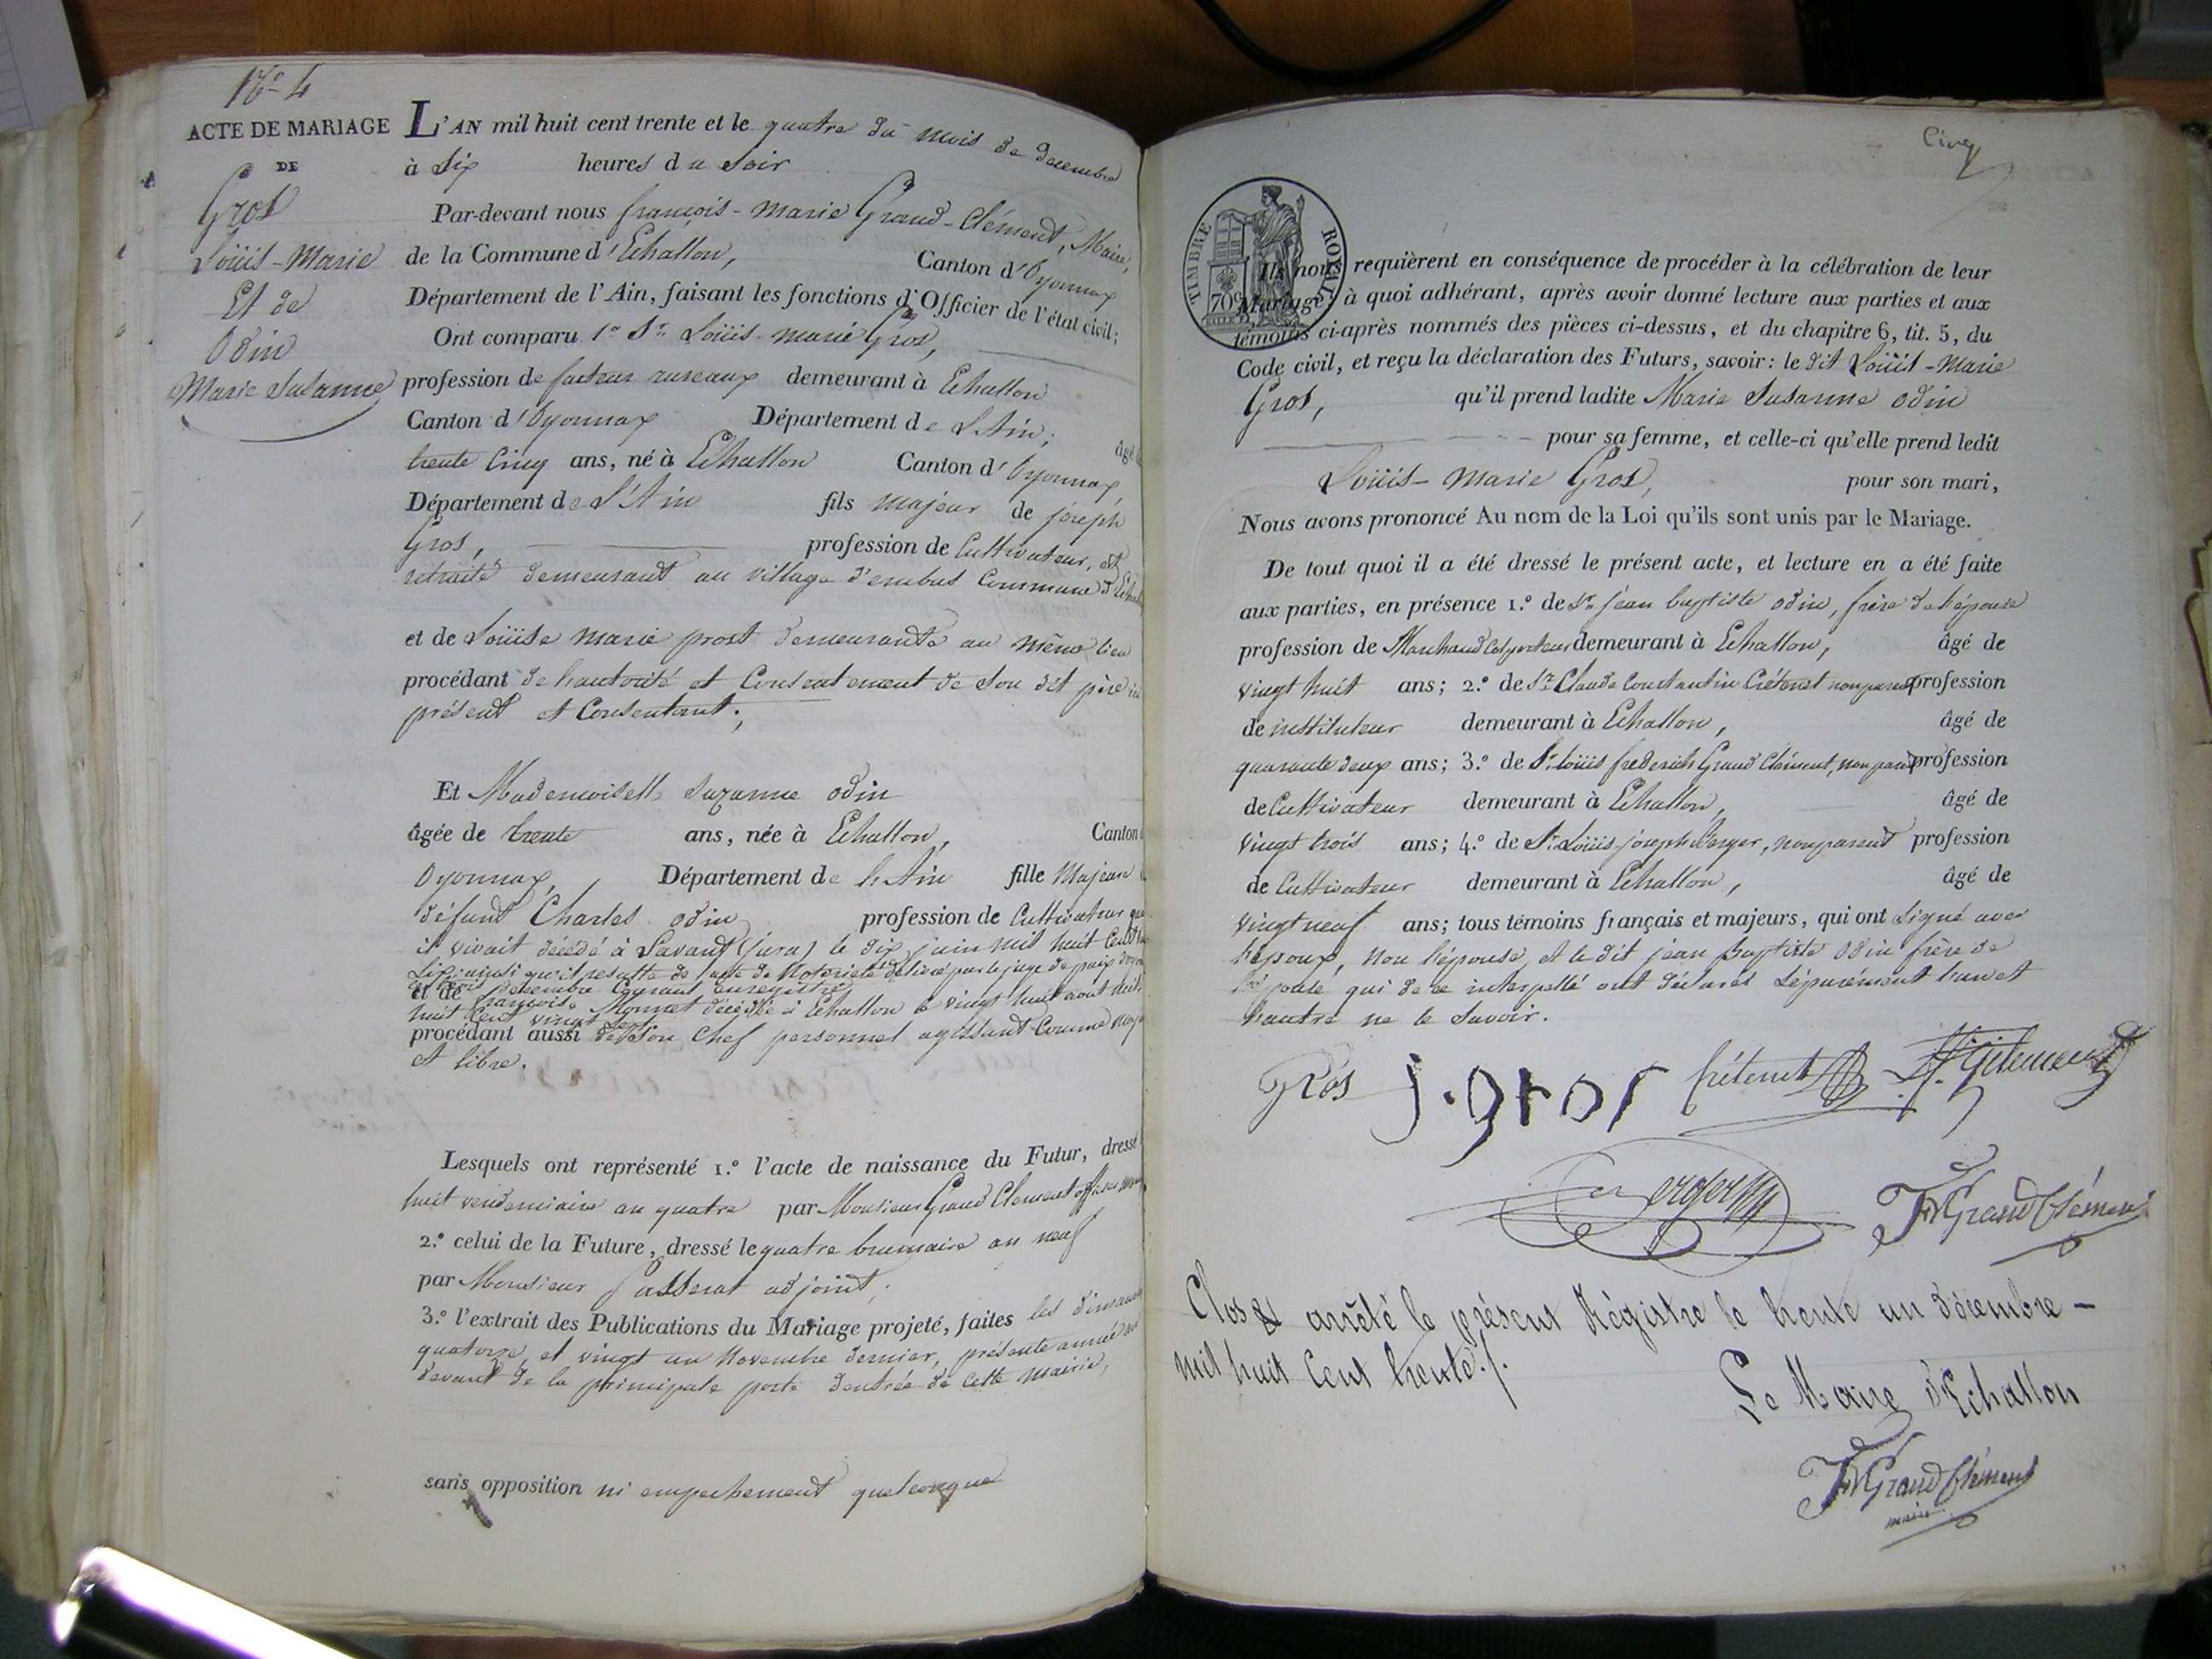 N.o 4
ACTE DE MARIAGE
DE
Gros
Loüis-Marie
Et de
Odin
Marie Susanne
L'AN mil huit cent trente et le quatre du mois de decembre
à Six heures du Soir
Par-devant nous françois-marie Grand-Clément, Maire,
de la Commune d'Echallon, Canton d'Oyonnax
Département de l'Ain, faisant les fonctions d'Officier de l'état civil;
Ont comparu 1.o Sr. Loüis-marie Gros,
profession de facteur ruraux demeurant à Echallon
Canton d'Oyonnax Département de L'Ain; âgé
trente Cinq ans, né à Echallon Canton d'Oyonnax,
Département de L'Ain fils majeur de joseph
Gros, profession de Cultivateur, et
retraité demeurant au village d'embus Commune d'Echallon
et de Loüise marie prost demeurante au même lieu
procédant de hautorité et Consentement de Son dit père
présent et Consentant;
Et Mademoiselle Suzanne odin
âgée de trente ans, née à Echallon, Canton
Oyonnax, Département de L'Ain fille Majeure
défunt Charles odin profession de Cultivateur
il vivait décédé à (jura) le dix juin mil huit Cent
Six ainsi qu'il résulte de l'acte de Notoriété délivré par le juge de paix
le trois decembre Courant enregistré
et de françoise Monnet décédée à Echallon le vingt huit aout mil
huit Cent vingt
procédant aussi de Son Chef personnel agissant Comme
et libre.
Lesquels ont représenté 1.° l'acte de naissance du Futur, dressé
huit vendemiaire an quatre par Monsieur Grand Clement
2.° celui de la Future, dressé le quatre brumaire an neuf
par Monsieur passerat adjoint;
3.° l'extrait des Publications du Mariage projeté, faites les
quatorze, et vingt un Novembre dernier, présente année
devant de la principale porte dentrée de cette mairie,
sans opposition ni empechement quelconque
Cinq
TIMBRE ROYAL
70c
Ils nous requièrent en conséquence de procéder à la célébration de leur
Mariage; à quoi adhérant, après avoir donné lecture aux parties et aux
témoins ci-après nommés des pièces ci-dessus, et du chapitre 6, tit. 5, du
Code civil, et reçu la déclaration des Futurs, savoir: le dit Loüis-Marie
Gros, qu'il prend ladite Marie Susanne odin
pour sa femme, et celle-ci qu'elle prend ledit
Loüis-Marie Gros, pour son mari,
Nous avons prononcé Au nom de la Loi qu'ils sont unis par le Mariage.
De tout quoi il a été dressé le présent acte, et lecture en a été faite
aux parties, en présence 1.° de Sr. jean baptiste odin, frère de l'épouse
profession de Marchand Colporteur demeurant à Echallon, âgé de
vingt huit ans; 2.° de Sr. Claude Constantin Crétenet non parent profession
de instituteur demeurant à Echallon, âgé de
quarante deux ans; 3.° de Sr. Loüis frederich Grand Clément, non parent profession
de Cultivateur demeurant à Echallon, âgé de
vingt trois ans; 4.° de Sr. Loüis-joseph Berger, non parent profession
de Cultivateur demeurant à Echallon, âgé de
vingt neuf ans; tous témoins français et majeurs, qui ont Signé avec
l'époux, non l'épouse, et le dit jean Baptiste Odin frère de
l'épouse qui de ce interpellé ont déclaré Séparément l'un et
l'autre ne le Savoir.
Gros j. gros Crétenet
Berger FM Grand Clément
Clos & arrêté le présent Régistre le trente un décembre -
mil huit Cent trente./.
Le Maire d'Echallon
FM Grand Clément
maire